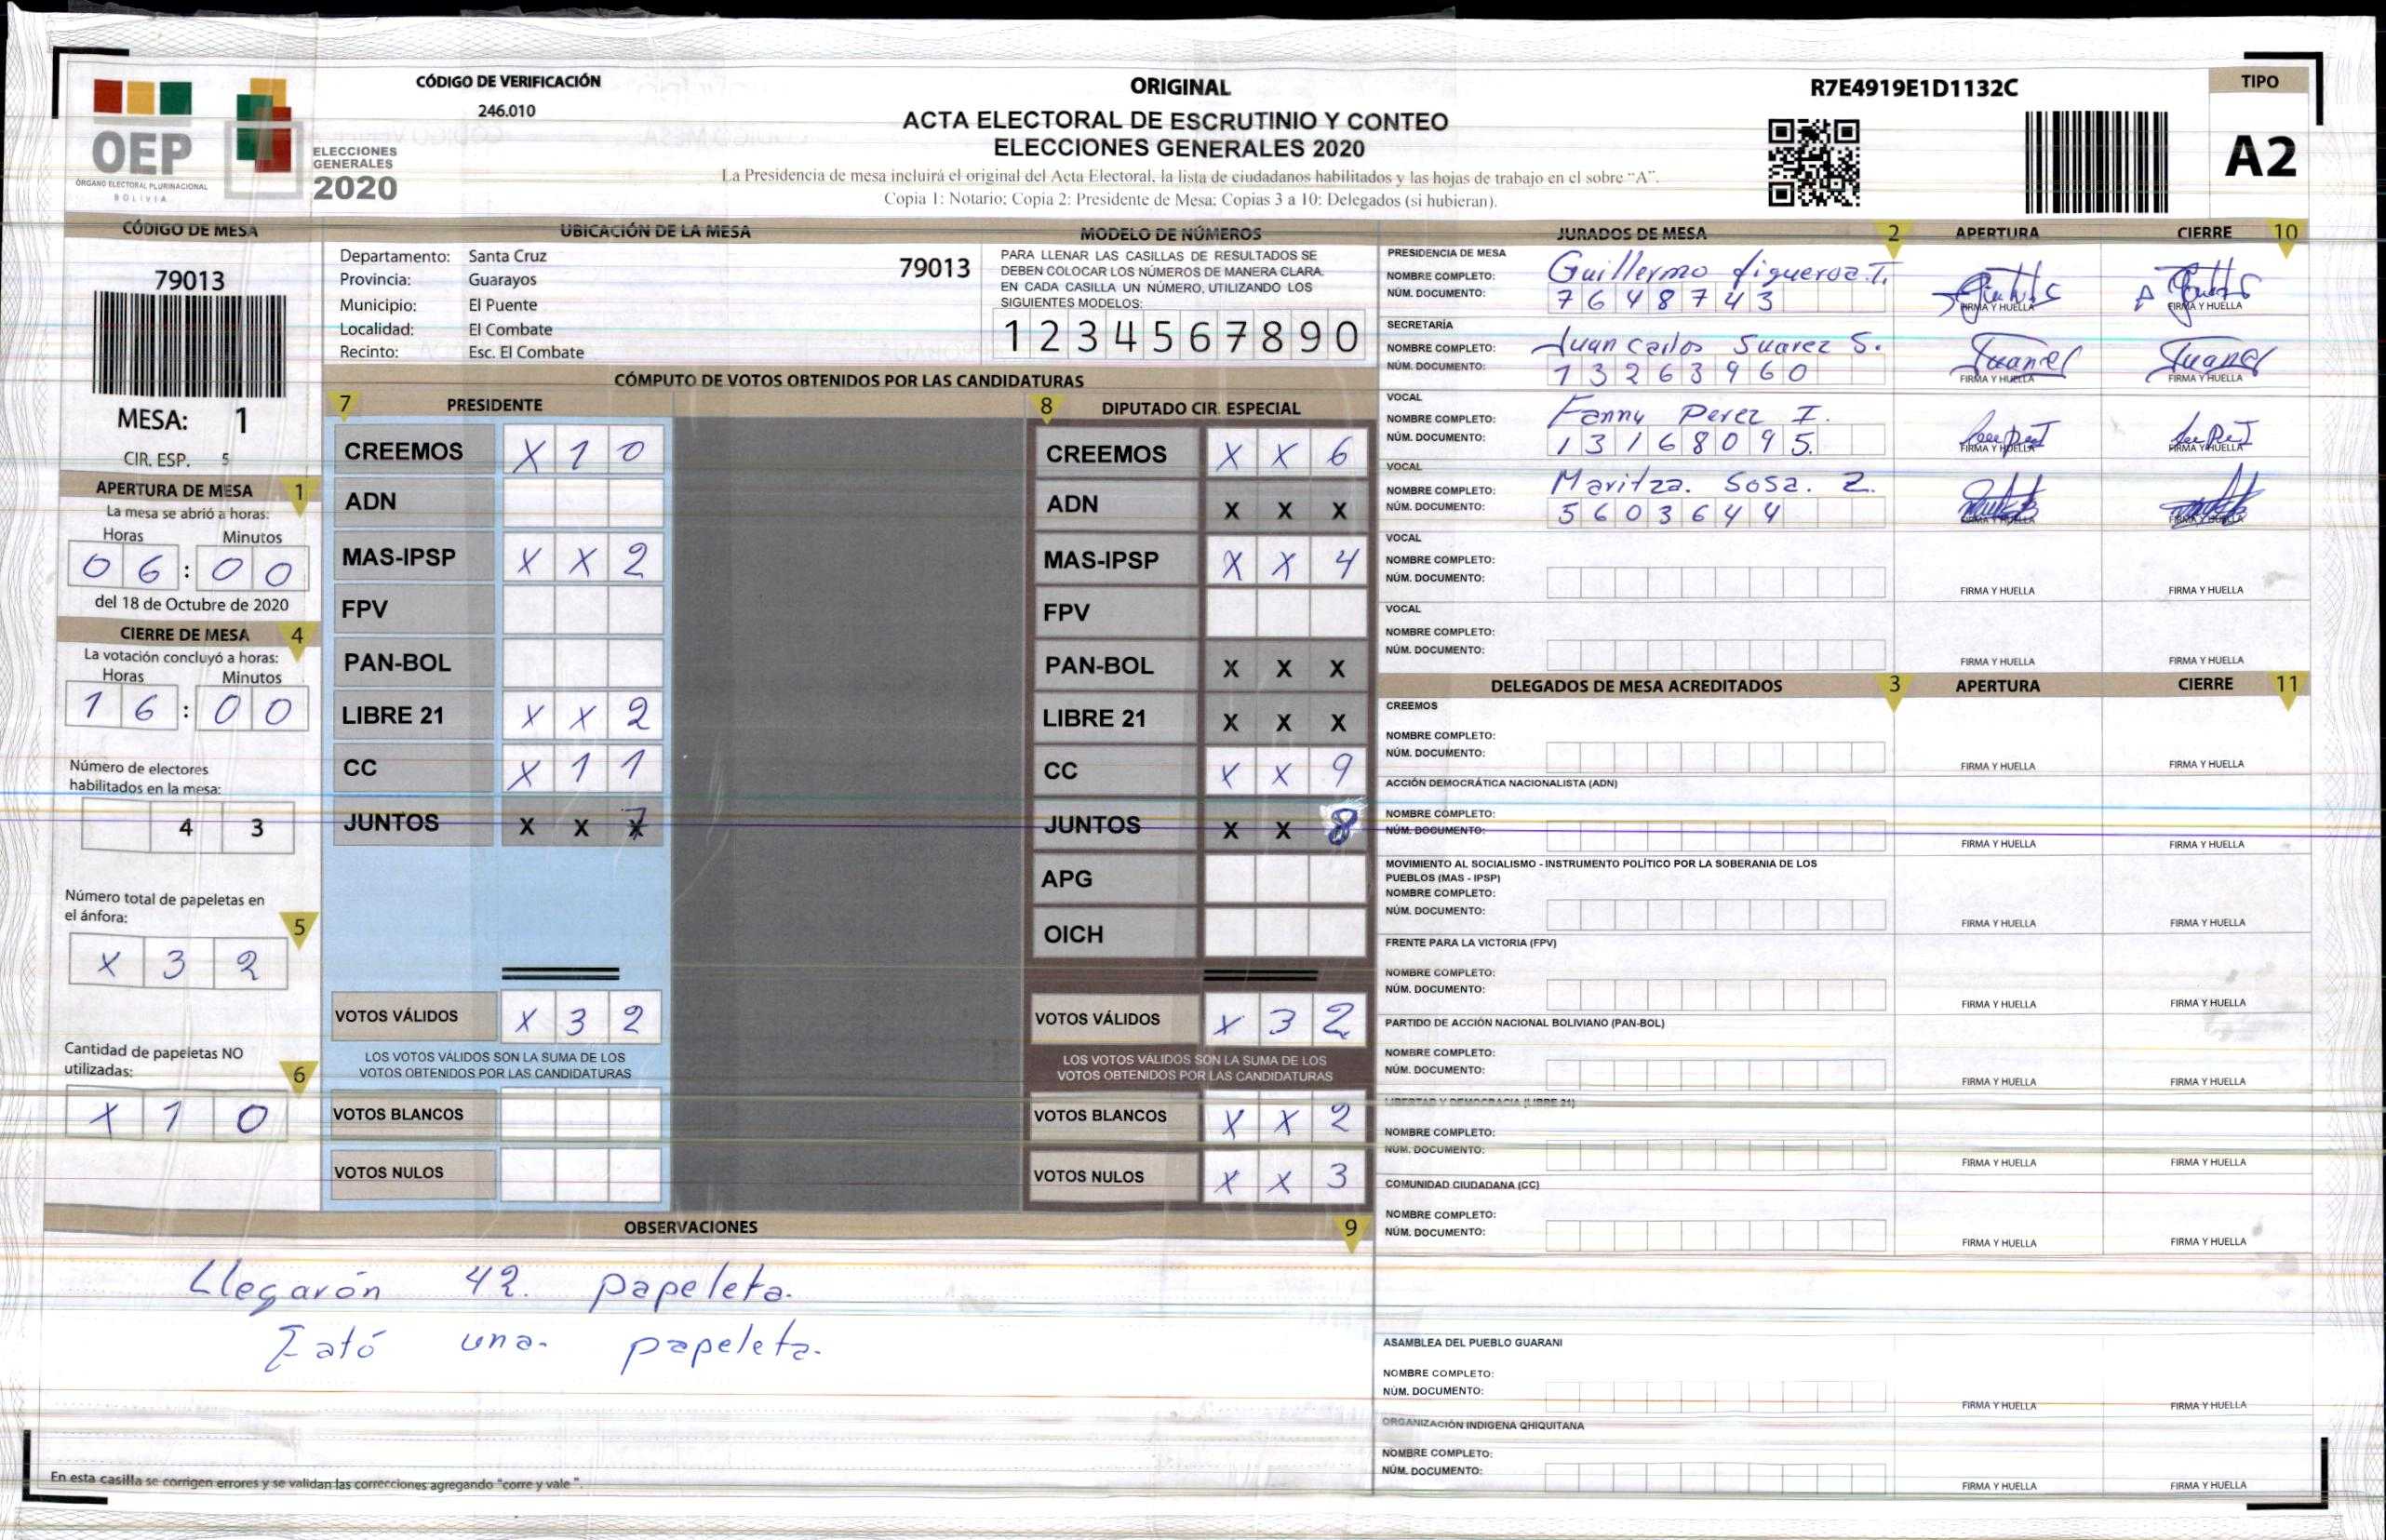 CÓDIGO DE VERIFICACIÓN
246.010
ORIGINAL
ACTA ELECTORAL DE ESCRUTINIO Y CONTEO
ELECCIONES GENERALES 2020
La Presidencia de mesa incluirá el original del Acta Electoral, la lista de ciudadanos habilitados y las hojas de trabajo en el sobre “A”.
Copia 1: Notario; Copia 2: Presidente de Mesa; Copias 3 a 10: Delegados (si hubieran).
R7E4919E1D1132C
TIPO
A2
OEP
ÓRGANO ELECTORAL PLURINACIONAL
BOLIVIA
ELECCIONES
GENERALES
2020
CÓDIGO DE MESA
79013
MESA: 1
CIR. ESP. 5
APERTURA DE MESA 1
La mesa se abrió a horas:
Horas Minutos
0 6 : 0 0
del 18 de Octubre de 2020
CIERRE DE MESA 4
La votación concluyó a horas:
Horas Minutos
1 6 : 0 0
Número de electores
habilitados en la mesa:
4 3
Número total de papeletas en
el ánfora: 5
X 3 2
Cantidad de papeletas NO
utilizadas: 6
X 1 0
UBICACIÓN DE LA MESA
Departamento: Santa Cruz
79013
Provincia: Guarayos
Municipio: El Puente
Localidad: El Combate
Recinto: Esc. El Combate
MODELO DE NÚMEROS
PARA LLENAR LAS CASILLAS DE RESULTADOS SE
DEBEN COLOCAR LOS NÚMEROS DE MANERA CLARA.
EN CADA CASILLA UN NÚMERO, UTILIZANDO LOS
SIGUIENTES MODELOS:
1 2 3 4 5 6 7 8 9 0
CÓMPUTO DE VOTOS OBTENIDOS POR LAS CANDIDATURAS
7 PRESIDENTE
CREEMOS X 1 0
ADN
MAS-IPSP X X 2
FPV
PAN-BOL
LIBRE 21 X X 2
CC X 1 1
JUNTOS X X 7
VOTOS VÁLIDOS X 3 2
LOS VOTOS VÁLIDOS SON LA SUMA DE LOS
VOTOS OBTENIDOS POR LAS CANDIDATURAS
VOTOS BLANCOS
VOTOS NULOS
8 DIPUTADO CIR. ESPECIAL
CREEMOS X X 6
ADN X X X
MAS-IPSP X X 4
FPV
PAN-BOL X X X
LIBRE 21 X X X
CC X X 9
JUNTOS X X 8
APG
OICH
VOTOS VÁLIDOS X 3 2
LOS VOTOS VÁLIDOS SON LA SUMA DE LOS
VOTOS OBTENIDOS POR LAS CANDIDATURAS
VOTOS BLANCOS X X 2
VOTOS NULOS X X 3
OBSERVACIONES 9
Llegarón 42. papeleta.
Fató una. papeleta.
En esta casilla se corrigen errores y se validan las correcciones agregando “corre y vale”.
JURADOS DE MESA 2 APERTURA CIERRE 10
PRESIDENCIA DE MESA
NOMBRE COMPLETO: Guillermo figueroa.T.
NÚM. DOCUMENTO: 7 6 4 8 7 4 3
FIRMA Y HUELLA FIRMA Y HUELLA
SECRETARÍA
NOMBRE COMPLETO: Juan carlos Suarez S.
NÚM. DOCUMENTO: 1 3 2 6 3 9 6 0
FIRMA Y HUELLA FIRMA Y HUELLA
VOCAL
NOMBRE COMPLETO: Fanny Perez I.
NÚM. DOCUMENTO: 1 3 1 6 8 0 9 5.
FIRMA Y HUELLA FIRMA Y HUELLA
VOCAL
NOMBRE COMPLETO: Maritza. Sosa. Z.
NÚM. DOCUMENTO: 5 6 0 3 6 4 4
FIRMA Y HUELLA FIRMA Y HUELLA
VOCAL
NOMBRE COMPLETO:
NÚM. DOCUMENTO:
FIRMA Y HUELLA FIRMA Y HUELLA
VOCAL
NOMBRE COMPLETO:
NÚM. DOCUMENTO:
FIRMA Y HUELLA FIRMA Y HUELLA
DELEGADOS DE MESA ACREDITADOS 3 APERTURA CIERRE 11
CREEMOS
NOMBRE COMPLETO:
NÚM. DOCUMENTO:
FIRMA Y HUELLA FIRMA Y HUELLA
ACCIÓN DEMOCRÁTICA NACIONALISTA (ADN)
NOMBRE COMPLETO:
NÚM. DOCUMENTO:
FIRMA Y HUELLA FIRMA Y HUELLA
MOVIMIENTO AL SOCIALISMO - INSTRUMENTO POLÍTICO POR LA SOBERANIA DE LOS
PUEBLOS (MAS - IPSP)
NOMBRE COMPLETO:
NÚM. DOCUMENTO:
FIRMA Y HUELLA FIRMA Y HUELLA
FRENTE PARA LA VICTORIA (FPV)
NOMBRE COMPLETO:
NÚM. DOCUMENTO:
FIRMA Y HUELLA FIRMA Y HUELLA
PARTIDO DE ACCIÓN NACIONAL BOLIVIANO (PAN-BOL)
NOMBRE COMPLETO:
NÚM. DOCUMENTO:
FIRMA Y HUELLA FIRMA Y HUELLA
LIBERTAD Y DEMOCRACIA (LIBRE 21)
NOMBRE COMPLETO:
NÚM. DOCUMENTO:
FIRMA Y HUELLA FIRMA Y HUELLA
COMUNIDAD CIUDADANA (CC)
NOMBRE COMPLETO:
NÚM. DOCUMENTO:
FIRMA Y HUELLA FIRMA Y HUELLA
ASAMBLEA DEL PUEBLO GUARANI
NOMBRE COMPLETO:
NÚM. DOCUMENTO:
FIRMA Y HUELLA FIRMA Y HUELLA
ORGANIZACIÓN INDIGENA QHIQUITANA
NOMBRE COMPLETO:
NÚM. DOCUMENTO:
FIRMA Y HUELLA FIRMA Y HUELLA